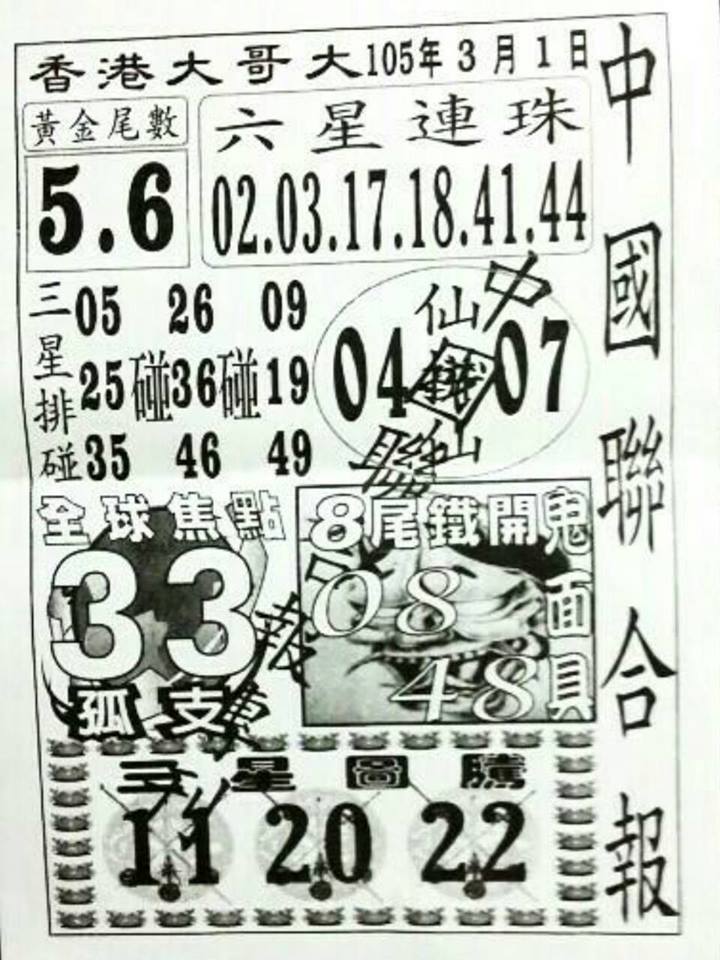 香港大哥大105年3月1日
中國聯合報
黃金尾數
5.6
六星連珠
02.03.17.18.41.44
三星排碰
05 26 09
25碰36碰19
35 46 49
仙
04 07
仙
中國聯合報
全球焦點
33
孤支
8尾鐵開
鬼面具
08
48
三星圖騰
11 20 22